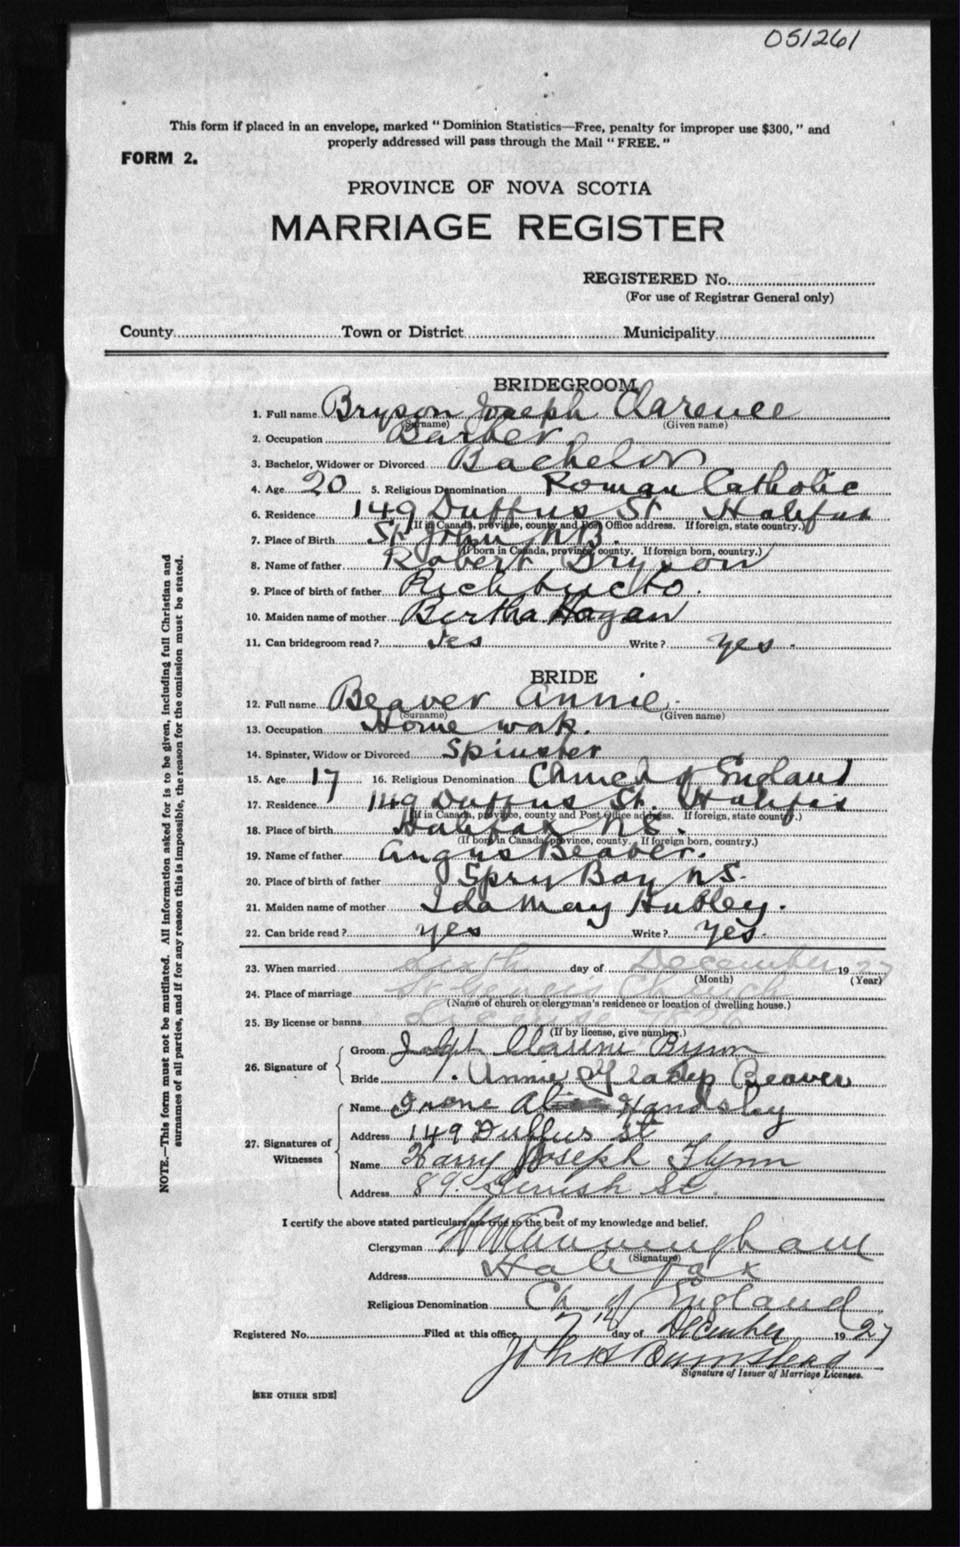 051261
This form if placed in an envelope, marked " Dominion Statistics—Free, penalty for improper use $300, " and
properly addressed will pass through the Mail " FREE. "
FORM 2.
PROVINCE OF NOVA SCOTIA
MARRIAGE REGISTER
REGISTERED No.
(For use of Registrar General only)
County Town or District Municipality
BRIDEGROOM
1. Full name Bryson Joseph Clarence
(Surname) (Given name)
2. Occupation Barber.
3. Bachelor, Widower or Divorced Bachelor
4. Age 20 5. Religious Denomination Roman Catholic
6. Residence 149 Duffus St Halifax
(If in Canada, province, county and Post Office address. If foreign, state country.)
7. Place of Birth St John N.B.
(If born in Canada, province, county. If foreign born, country.)
8. Name of father Robert Bryson
9. Place of birth of father Richbucto.
10. Maiden name of mother Bertha Hogan
11. Can bridegroom read? Yes Write? yes.
BRIDE
12. Full name Beaver Annie.
(Surname) (Given name)
13. Occupation Home work.
14. Spinster, Widow or Divorced Spinster
15. Age 17 16. Religious Denomination Church of England
17. Residence 149 Duffus St. Halifax
(If in Canada, province, county and Post Office address. If foreign, state country.)
18. Place of birth Halifax N.S.
(If born in Canada, province, county. If foreign born, country.)
19. Name of father Angus Beaver.
20. Place of birth of father Spry Bay N.S.
21. Maiden name of mother Ida May Hubley.
22. Can bride read? yes Write? Yes.
23. When married Sixth day of December 1927
(Month) (Year)
24. Place of marriage St Georges Church
(Name of church or clergyman's residence or location of dwelling house.)
25. By license or banns License
(If by license, give number.)
26. Signature of
Groom Clarence
Bride Annie Gladys Beaver
27. Signatures of Witnesses
Name Irene
Address 149 Duffus St
Name Harry Joseph Flynn
Address 89 Gerrish St.
I certify the above stated particulars are true to the best of my knowledge and belief.
Clergyman Cunningham
(Signature)
Address Halifax
Religious Denomination Ch. of England
Registered No. Filed at this office 7th day of December 1927
John H Barnstead
Signature of Issuer of Marriage Licenses.
[SEE OTHER SIDE]
NOTE.—This form must not be mutilated. All information asked for is to be given, including full Christian and
surnames of all parties, and if for any reason this is impossible, the reason for the omission must be stated.